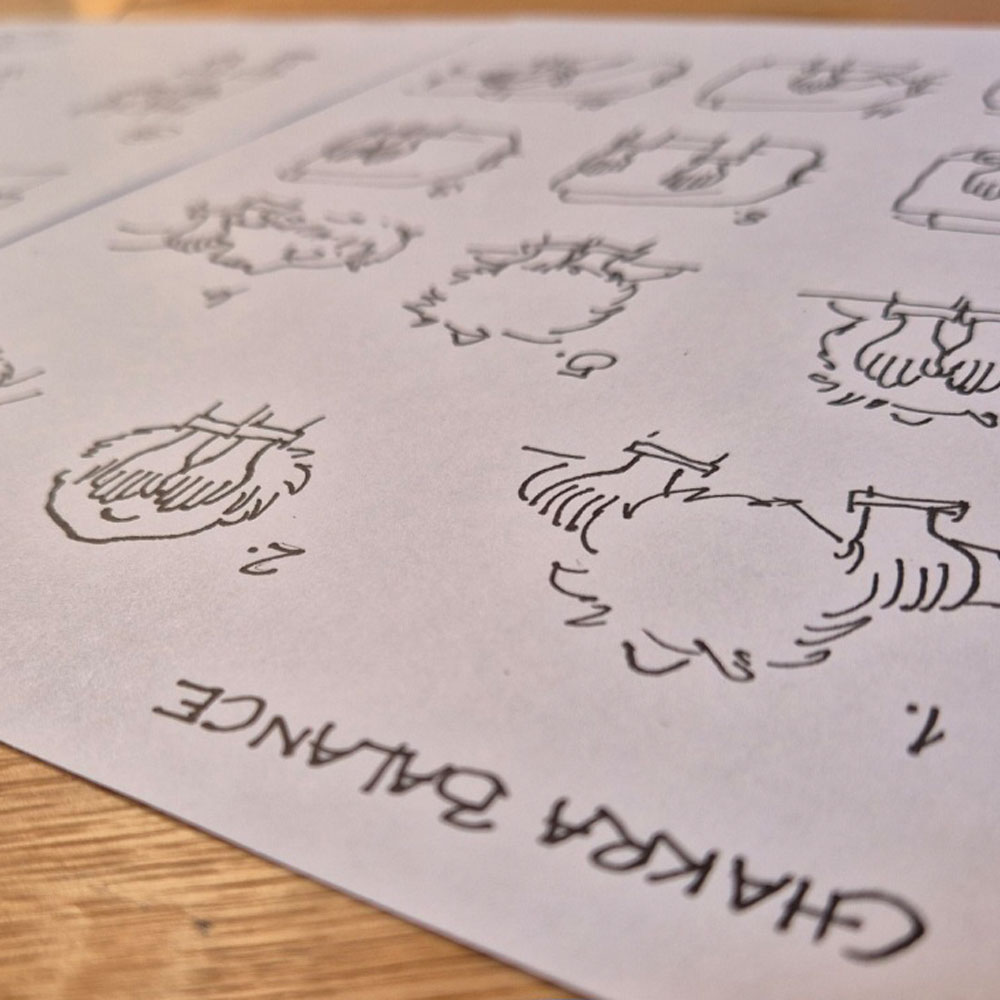 CHAKRA BALANCE
1.
2.
5.